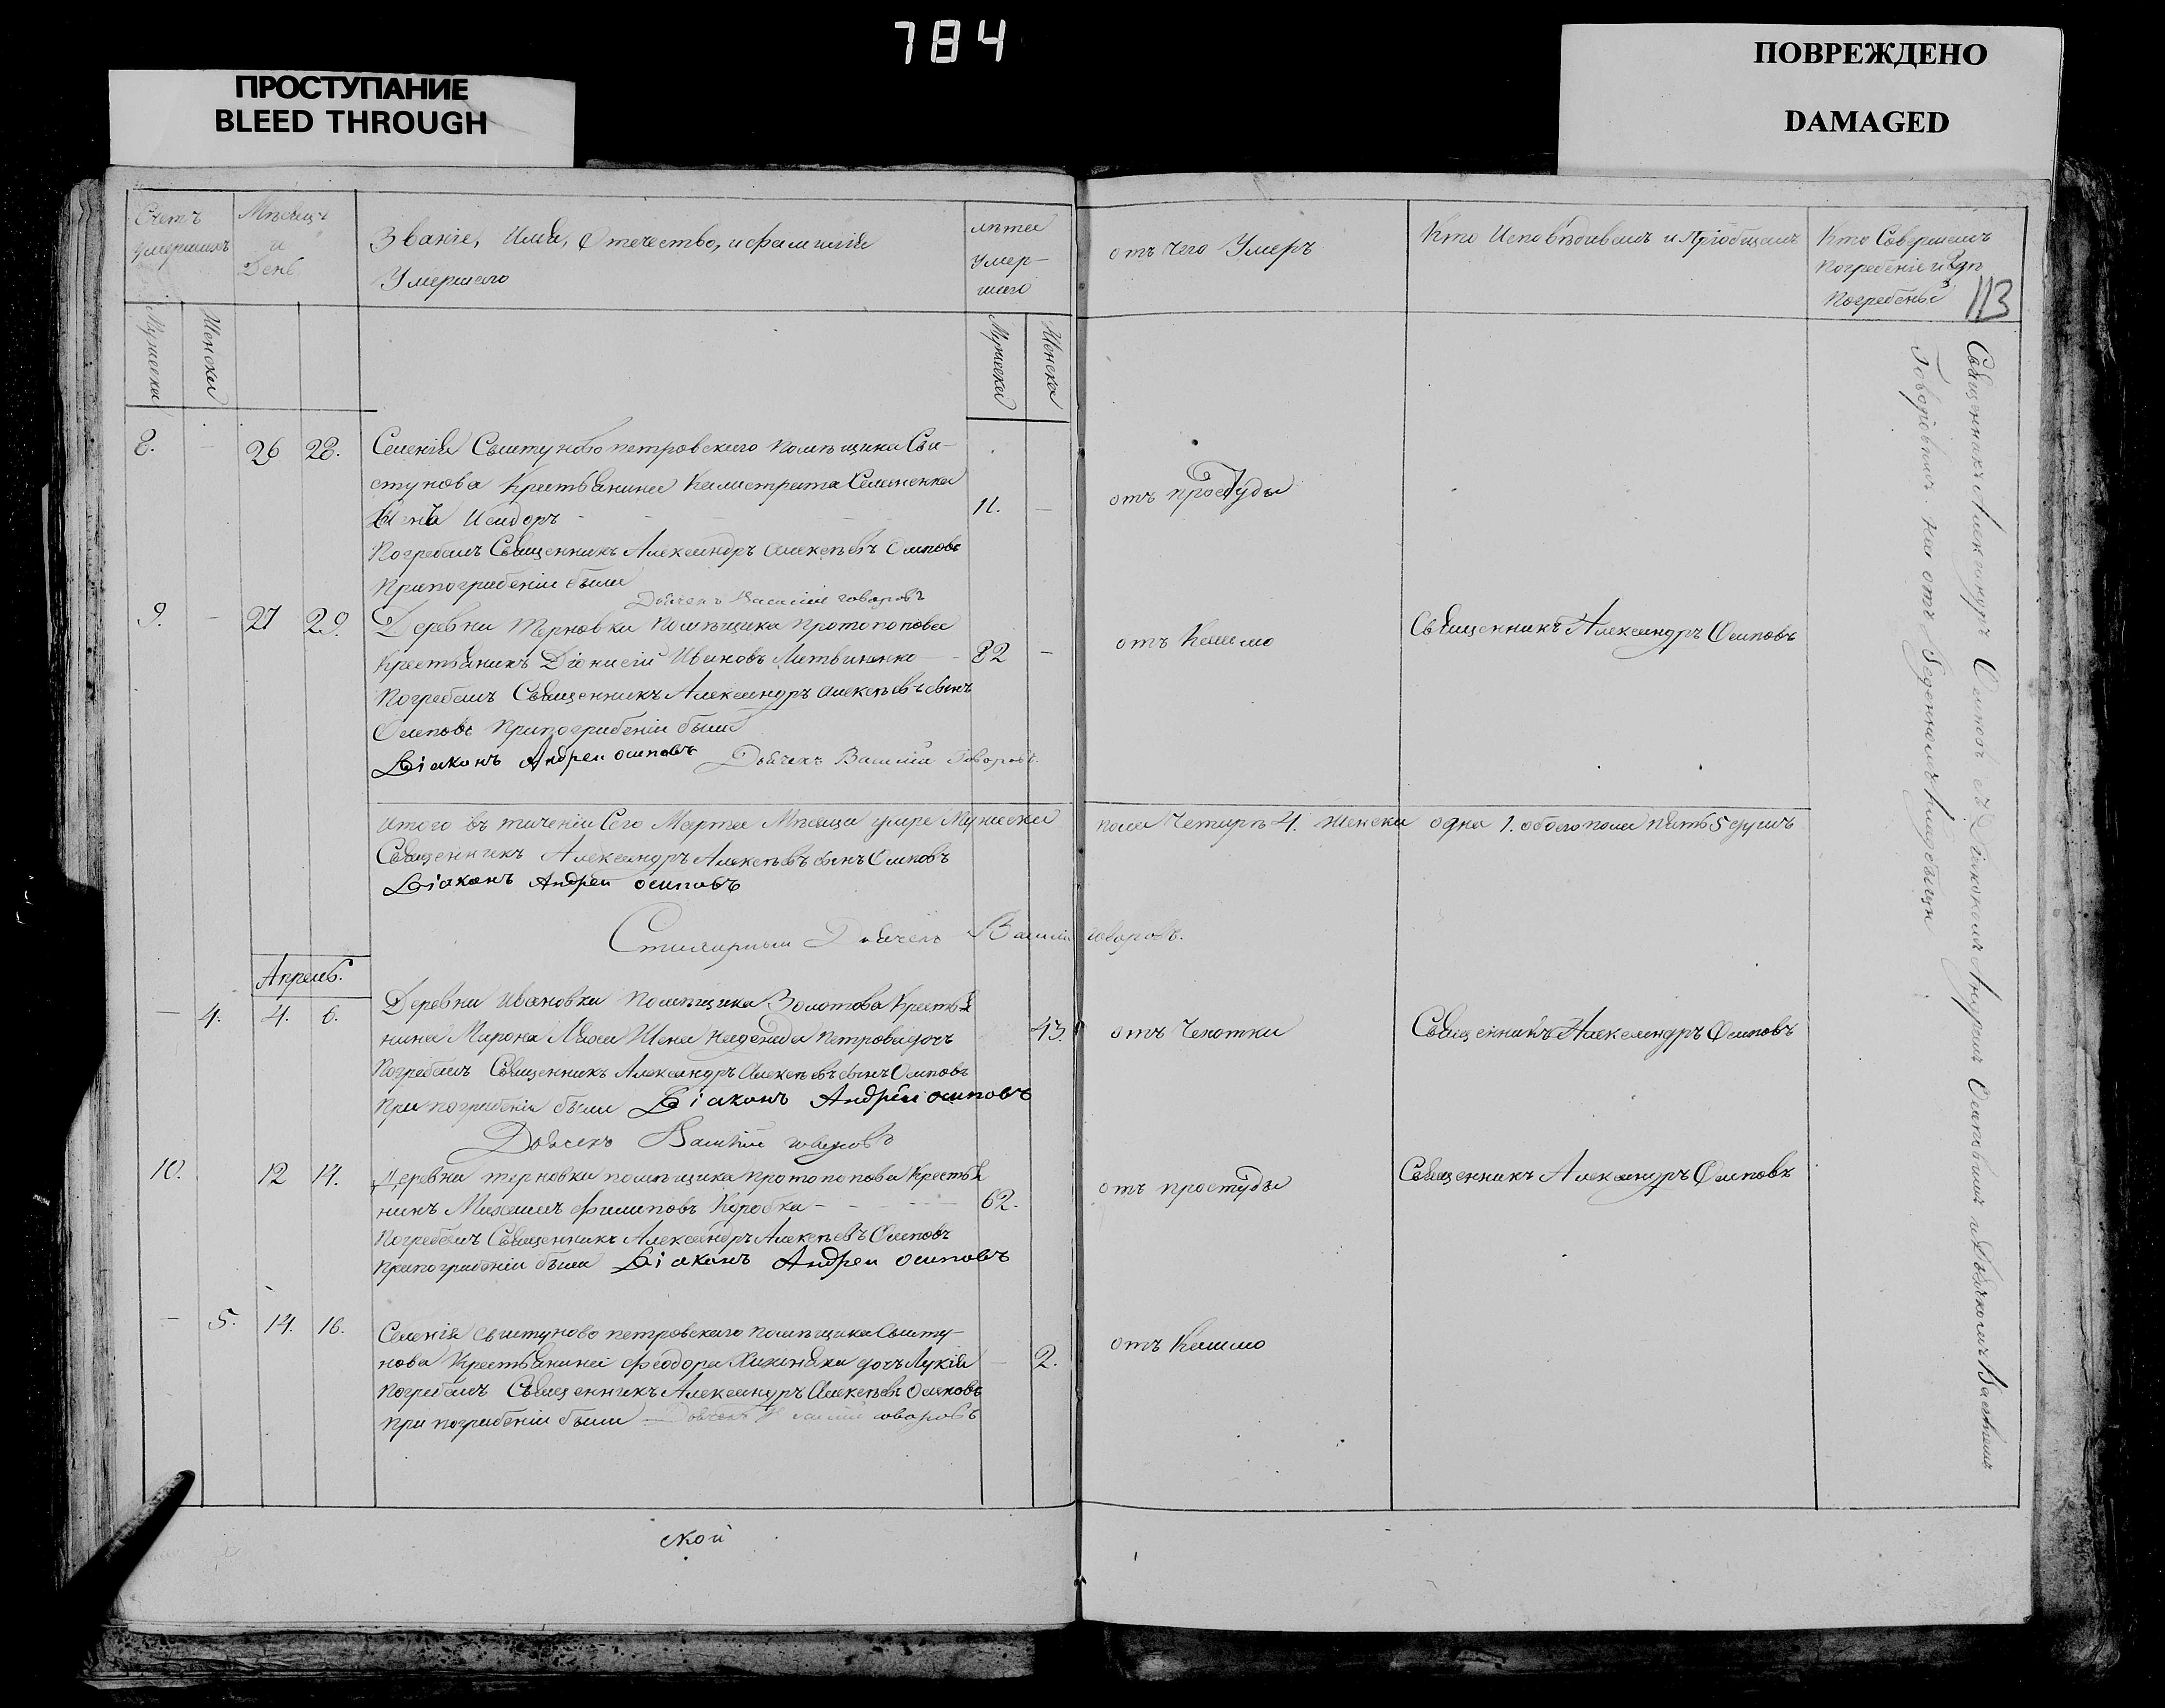 784
ПРОСТУПАНИЕ
BLEED THROUGH
ПОВРЕЖДЕНО
DAMAGED
Счетъ умершихъ
Мѣсяцъ и День
Званіе, Имя, Отечество, и фамилія
Умершаго
лѣта умер-
шаго
отъ чего Умеръ
Кто Исповѣдывалъ и Пріобщалъ
Кто Совершалъ
погребеніе и гдѣ
погребены
113
Мужеска
Женска
Мужеска
Женска
8. - 26 28. Селенія Свистуново петровскаго помѣщика Сви-
стунова Крестьянина Калистрата Семененка
Сынъ Исидоръ - 11. - отъ простуды
Погребалъ Священникъ Александръ Алексѣевъ Осиповъ
При погребеніи были
Дьячекъ Василій говоровъ
9. - 27 29. Деревни Терновки Помѣщика Протопопова
Крестьянинъ Діонисій Ивановъ Литвиненко - 82 - отъ Кашлю Священникъ Александръ Осиповъ
Погребалъ Священникъ Александръ Алексѣевъ сынъ
Осиповъ При погребеніи были
Діаконъ Андреи осиповъ Дьячекъ Василій Говоровъ.
Итого въ теченіи Сего Марта Мѣсяца умре Мужеска пола Четырѣ 4. женска одна 1. обоего пола пять 5 душъ
Священникъ Александръ Алексѣевъ сынъ Осиповъ
Діаконъ Андреи осиповъ
Дьячекъ Василій говоровъ.
Апрель.
- 4. 4. 6. Деревни Ивановки Помѣщика Золотова Крестья
нина Мирона Ляха Жена Надежда Петрова дочь 43. отъ Чахотки Священникъ Александръ Осиповъ
Погребалъ Священникъ Александръ Алексѣевъ сынъ Осиповъ
При погребеніи были Діаконъ Андреи осиповъ
Дьячекъ Василій говоровъ
10. 12 14. Деревни терновки помѣщика протопопова Крестья
нинъ Михаилъ Филиповъ Коробка - 62. отъ простуды Священникъ Александръ Осиповъ
Погребалъ Священникъ Александръ Алексѣевъ Осиповъ
При погребеніи были Діаконъ Андреи осиповъ
- 5. 14. 16. Селенія свистуново петровскаго помѣщика Свисту-
нова Крестьянина Феодора дочь Лукія - 2. отъ Кашлю
Погребалъ Священникъ Александръ Алексѣевъ Осиповъ
При погребеніи были Дьячекъ Василій говоровъ
Священникъ Александръ Осиповъ съ Діакономъ Андреемъ Осиповымъ и Дьячкомъ Василіемъ
Говоровымъ на кладбищѣ
ской